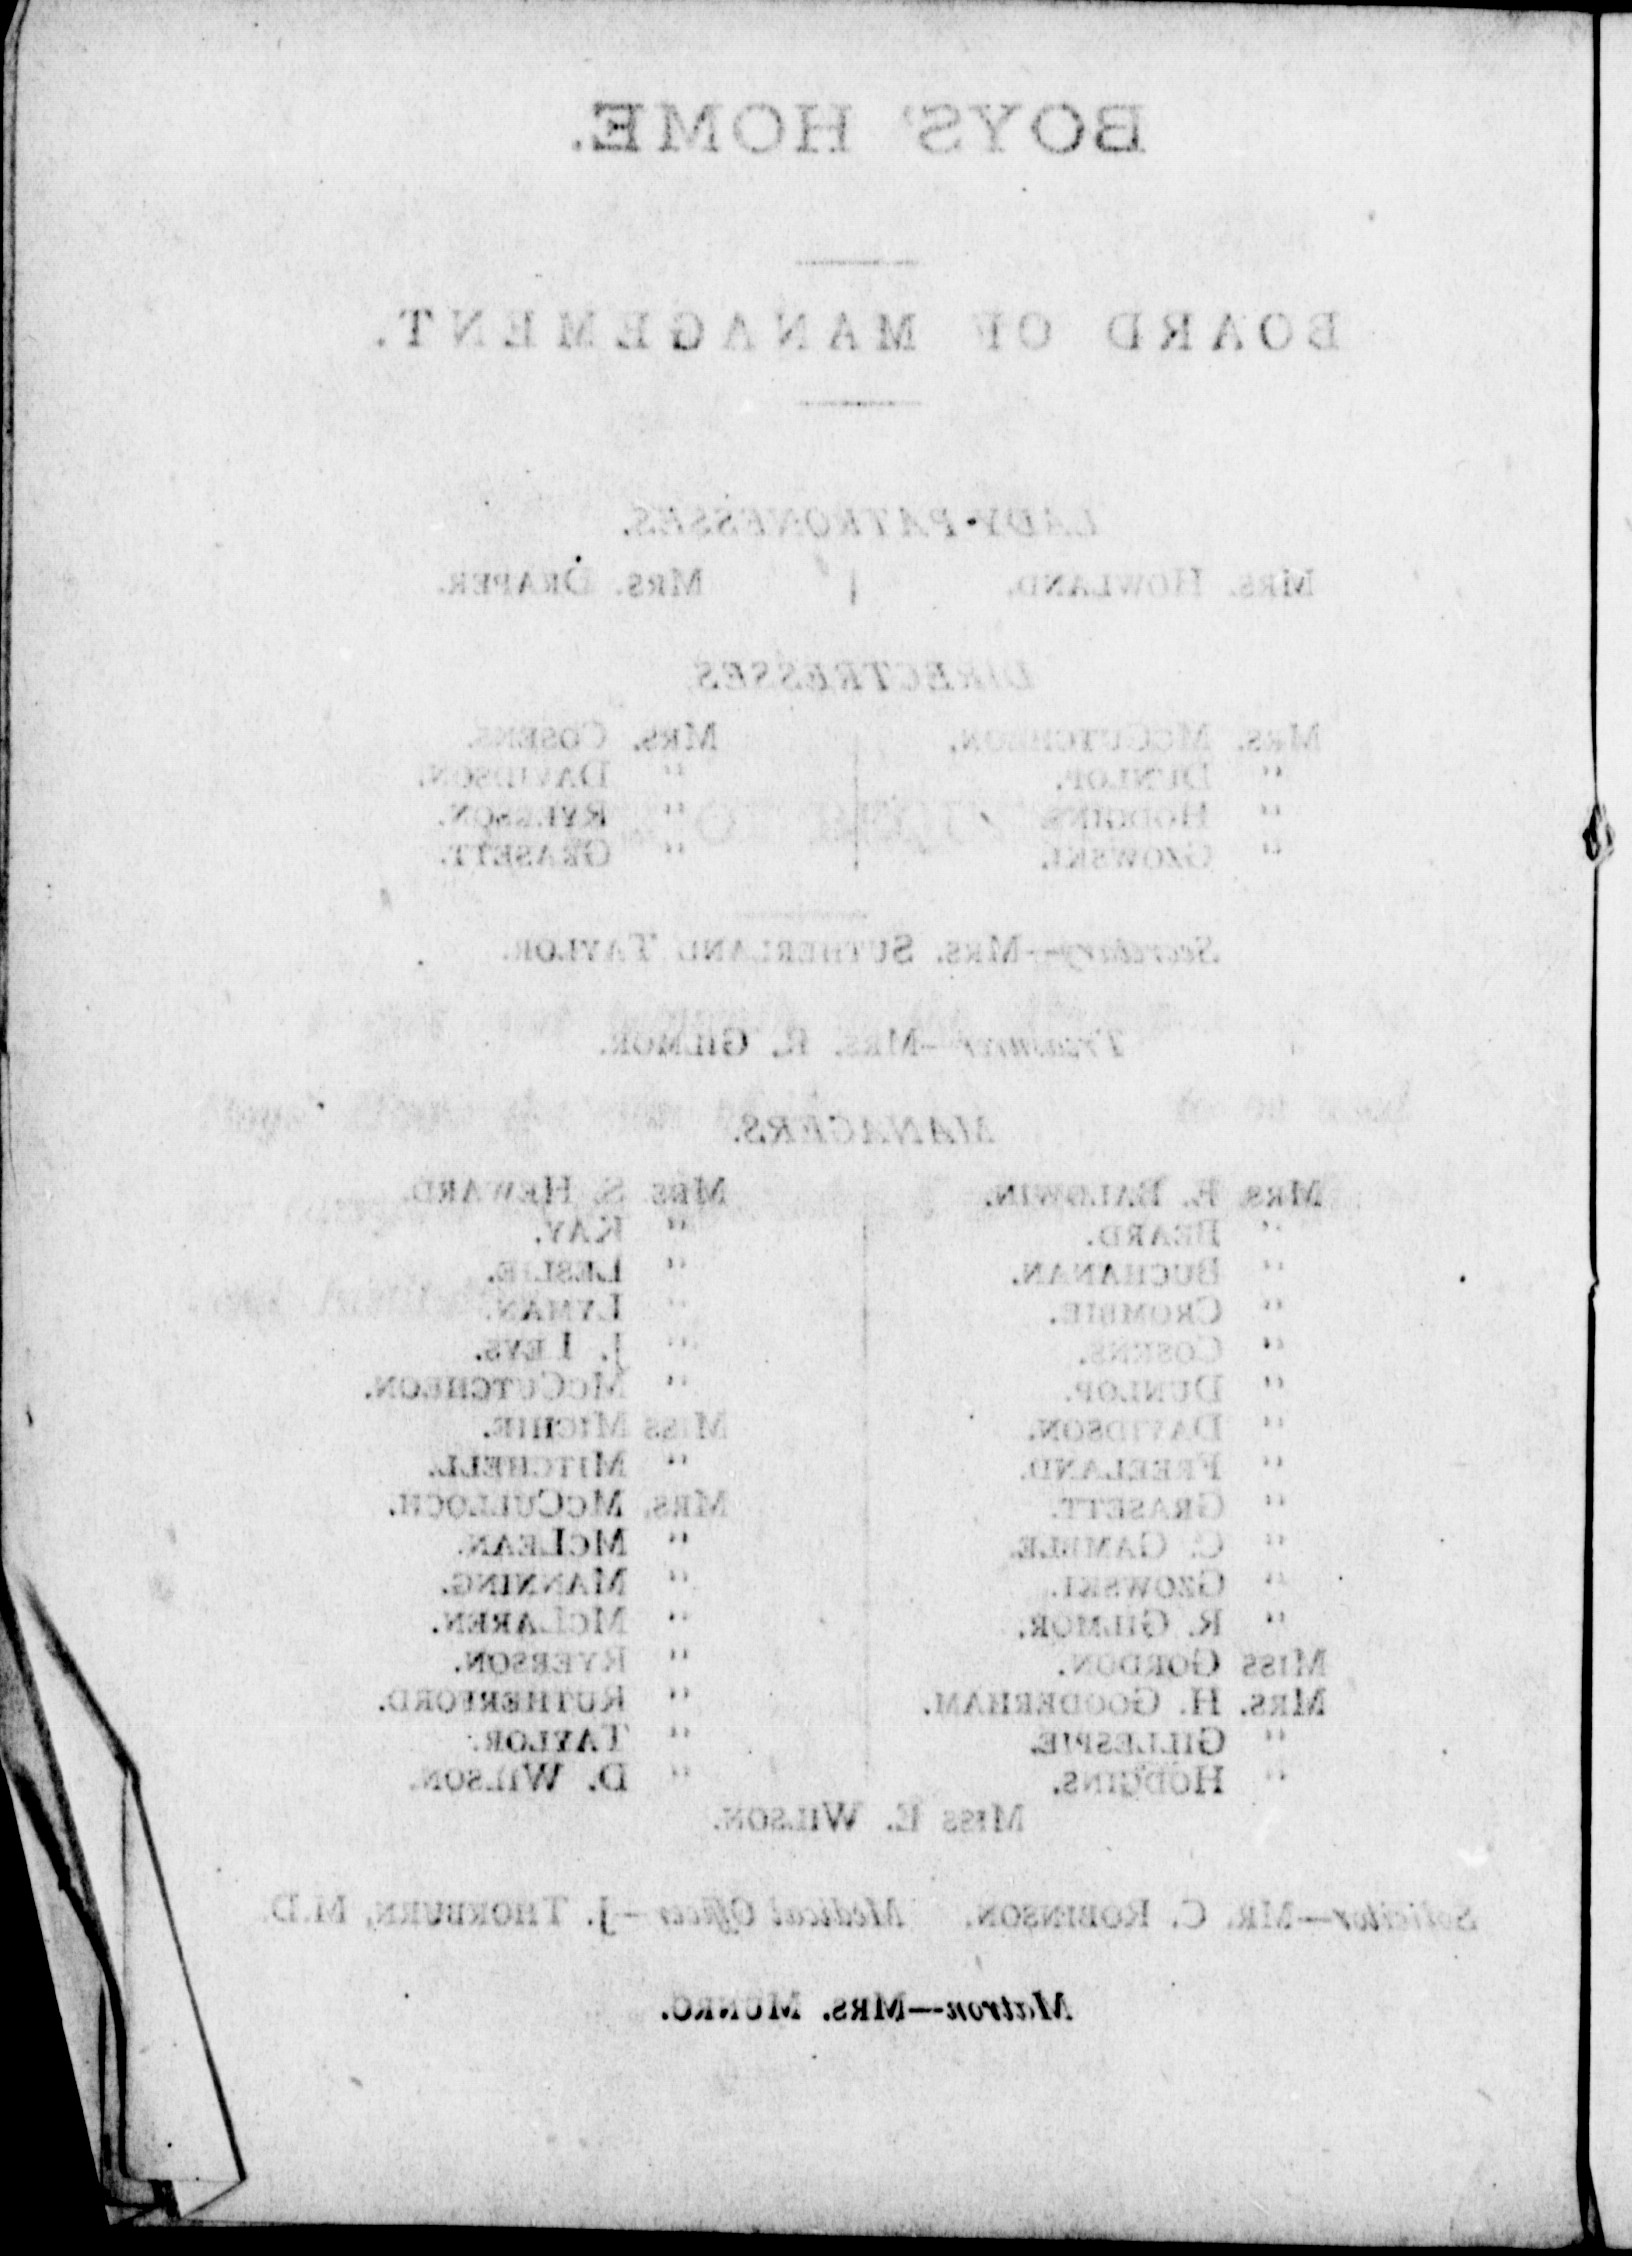 BOYS' HOME.
BOARD OF MANAGEMENT.
LADY-PATRONESSES.
MRS. HOWLAND. | MRS. DRAPER.
DIRECTRESSES
MRS. MCCUTCHEON. MRS. COSENS.
" DUNLOP. " DAVIDSON.
" HODGINS. " RYERSON.
" GZOWSKI. " GRASETT.
Secretary—MRS. SUTHERLAND TAYLOR.
Treasurer—MRS. R. GILMOR.
MANAGERS.
MRS. E. BALDWIN. MRS S. HEWARD.
" BEARD. " KAY.
" BUCHANAN. " LESLIE.
" CROMBIE. " LYMAN.
" COSENS. " J. LEYS.
" DUNLOP. " MCCUTCHEON.
" DAVIDSON. MISS MICHIE.
" FREELAND. " MITCHELL.
" GRASETT. MRS. MCCULLOCH.
" C. GAMBLE. " MCLEAN.
" GZOWSKI. " MANNING.
" R. GILMOR. " MCLAREN.
MISS GORDON. " RYERSON.
MRS. H. GOODERHAM. " RUTHERFORD.
" GILLESPIE. " TAYLOR.
" HODGINS. " D. WILSON.
MISS E. WILSON.
Solicitor—MR. C. ROBINSON. Medical Officer—J. THORBURN, M.D.
Matron—MRS. MUNRO.